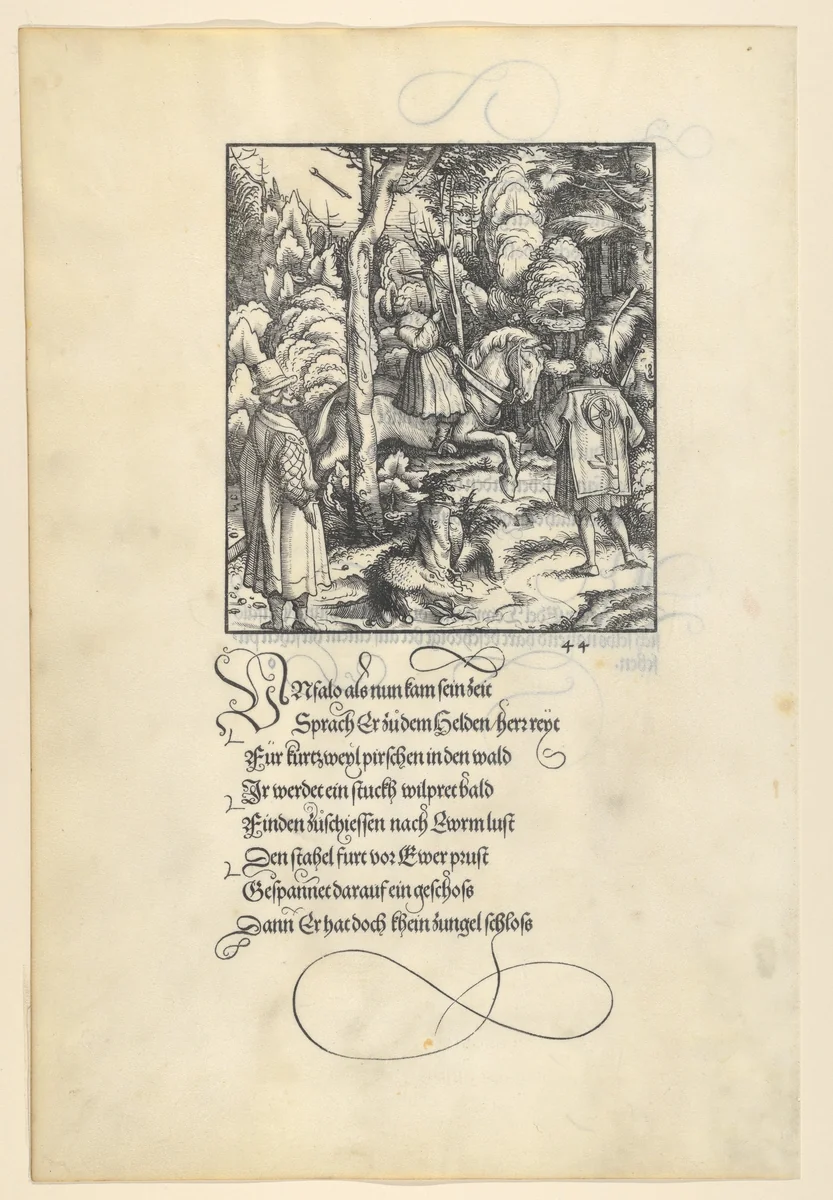 44
UNfalo als nun kam sein zeit
Sprach Er zů dem Helden herr reyt
Für kurtzweyl pirschen in den wald
Ir werdet ein stuckh wilpret bald
Finden zůschiessen nach Ewrm lust
Den stahel furt vor Ewer prust
Gespannet darauf ein geschoss
Dann Er hat doch khein zungel schloss